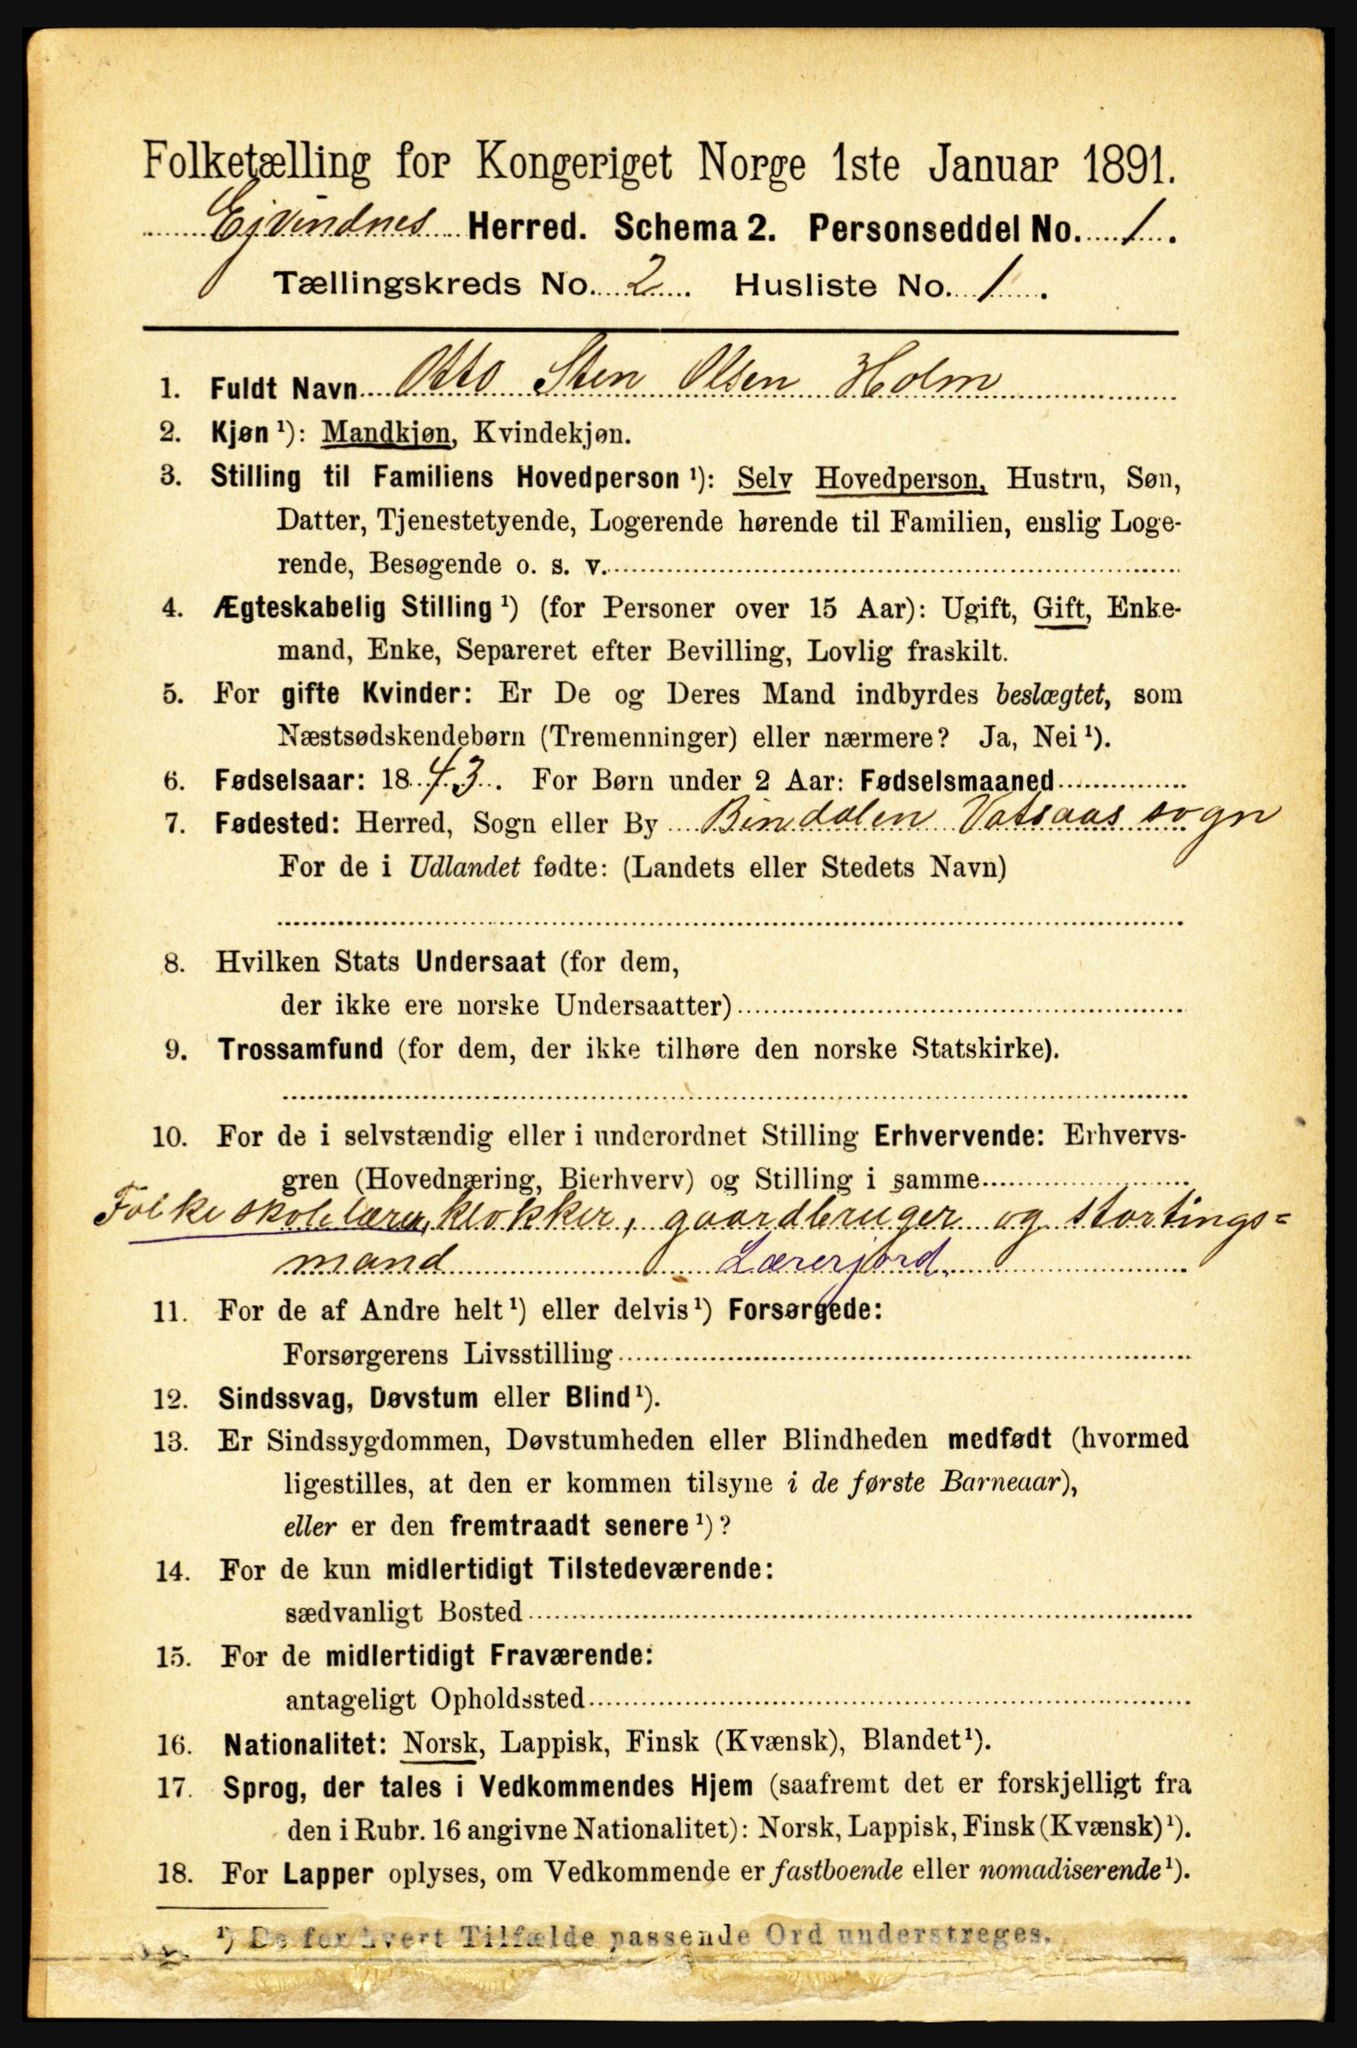 Folketælling for Kongeriget Norge 1ste Januar 1891.
Ejvindnes Herred. Schema 2. Personseddel No. 1.
Tællingskreds No. 2. Husliste No. 1.
1. Fuldt Navn Otto Sten Olsen Holm
2. Kjøn ¹): Mandkjøn, Kvindekjøn.
3. Stilling til Familiens Hovedperson ¹): Selv Hovedperson, Hustru, Søn,
Datter, Tjenestetyende, Logerende hørende til Familien, enslig Loge-
rende, Besøgende o. s. v.
4. Ægteskabelig Stilling ¹) (for Personer over 15 Aar): Ugift, Gift, Enke-
mand, Enke, Separeret efter Bevilling, Lovlig fraskilt.
5. For gifte Kvinder: Er De og Deres Mand indbyrdes beslægtet, som
Næstsødskendebørn (Tremenninger) eller nærmere? Ja, Nei ¹).
6. Fødselsaar: 1843. For Børn under 2 Aar: Fødselsmaaned
7. Fødested: Herred, Sogn eller By Bindalen Vatsaas sogn
For de i Udlandet fødte: (Landets eller Stedets Navn)
8. Hvilken Stats Undersaat (for dem,
der ikke ere norske Undersaatter)
9. Trossamfund (for dem, der ikke tilhøre den norske Statskirke).
10. For de i selvstændig eller i underordnet Stilling Erhvervende: Erhvervs-
gren (Hovednæring, Bierhverv) og Stilling i samme
Folkeskolelærer, klokker, gaardbruger og stortings=
mand Lærerjord.
11. For de af Andre helt ¹) eller delvis ¹) Forsørgede:
Forsørgerens Livsstilling
12. Sindssvag, Døvstum eller Blind ¹).
13. Er Sindssygdommen, Døvstumheden eller Blindheden medfødt (hvormed
ligestilles, at den er kommen tilsyne i de første Barneaar),
eller er den fremtraadt senere ¹)?
14. For de kun midlertidigt Tilstedeværende:
sædvanligt Bosted
15. For de midlertidigt Fraværende:
antageligt Opholdssted
16. Nationalitet: Norsk, Lappisk, Finsk (Kvænsk), Blandet ¹).
17. Sprog, der tales i Vedkommendes Hjem (saafremt det er forskjelligt fra
den i Rubr. 16 angivne Nationalitet): Norsk, Lappisk, Finsk (Kvænsk) ¹).
18. For Lapper oplyses, om Vedkommende er fastboende eller nomadiserende ¹).
¹) De for hvert Tilfælde passende Ord understreges.